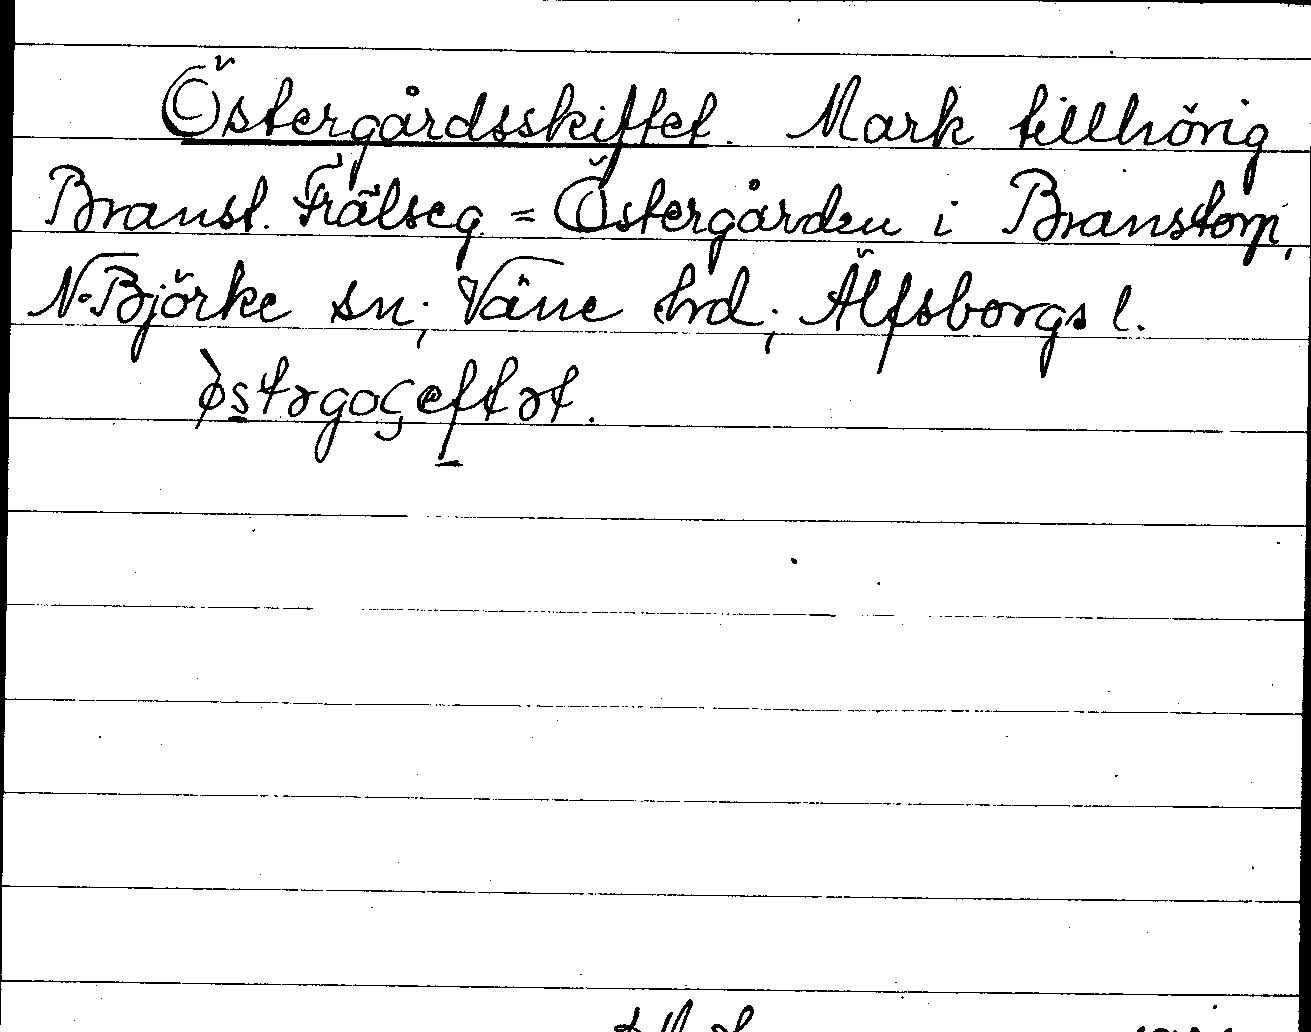 Östergårdsskiftet. Mark tillhörig
Branst. Frälseg. = Östergården i Branstorp,
N. Björke sn; Väne hrd; Älfsborgs l.